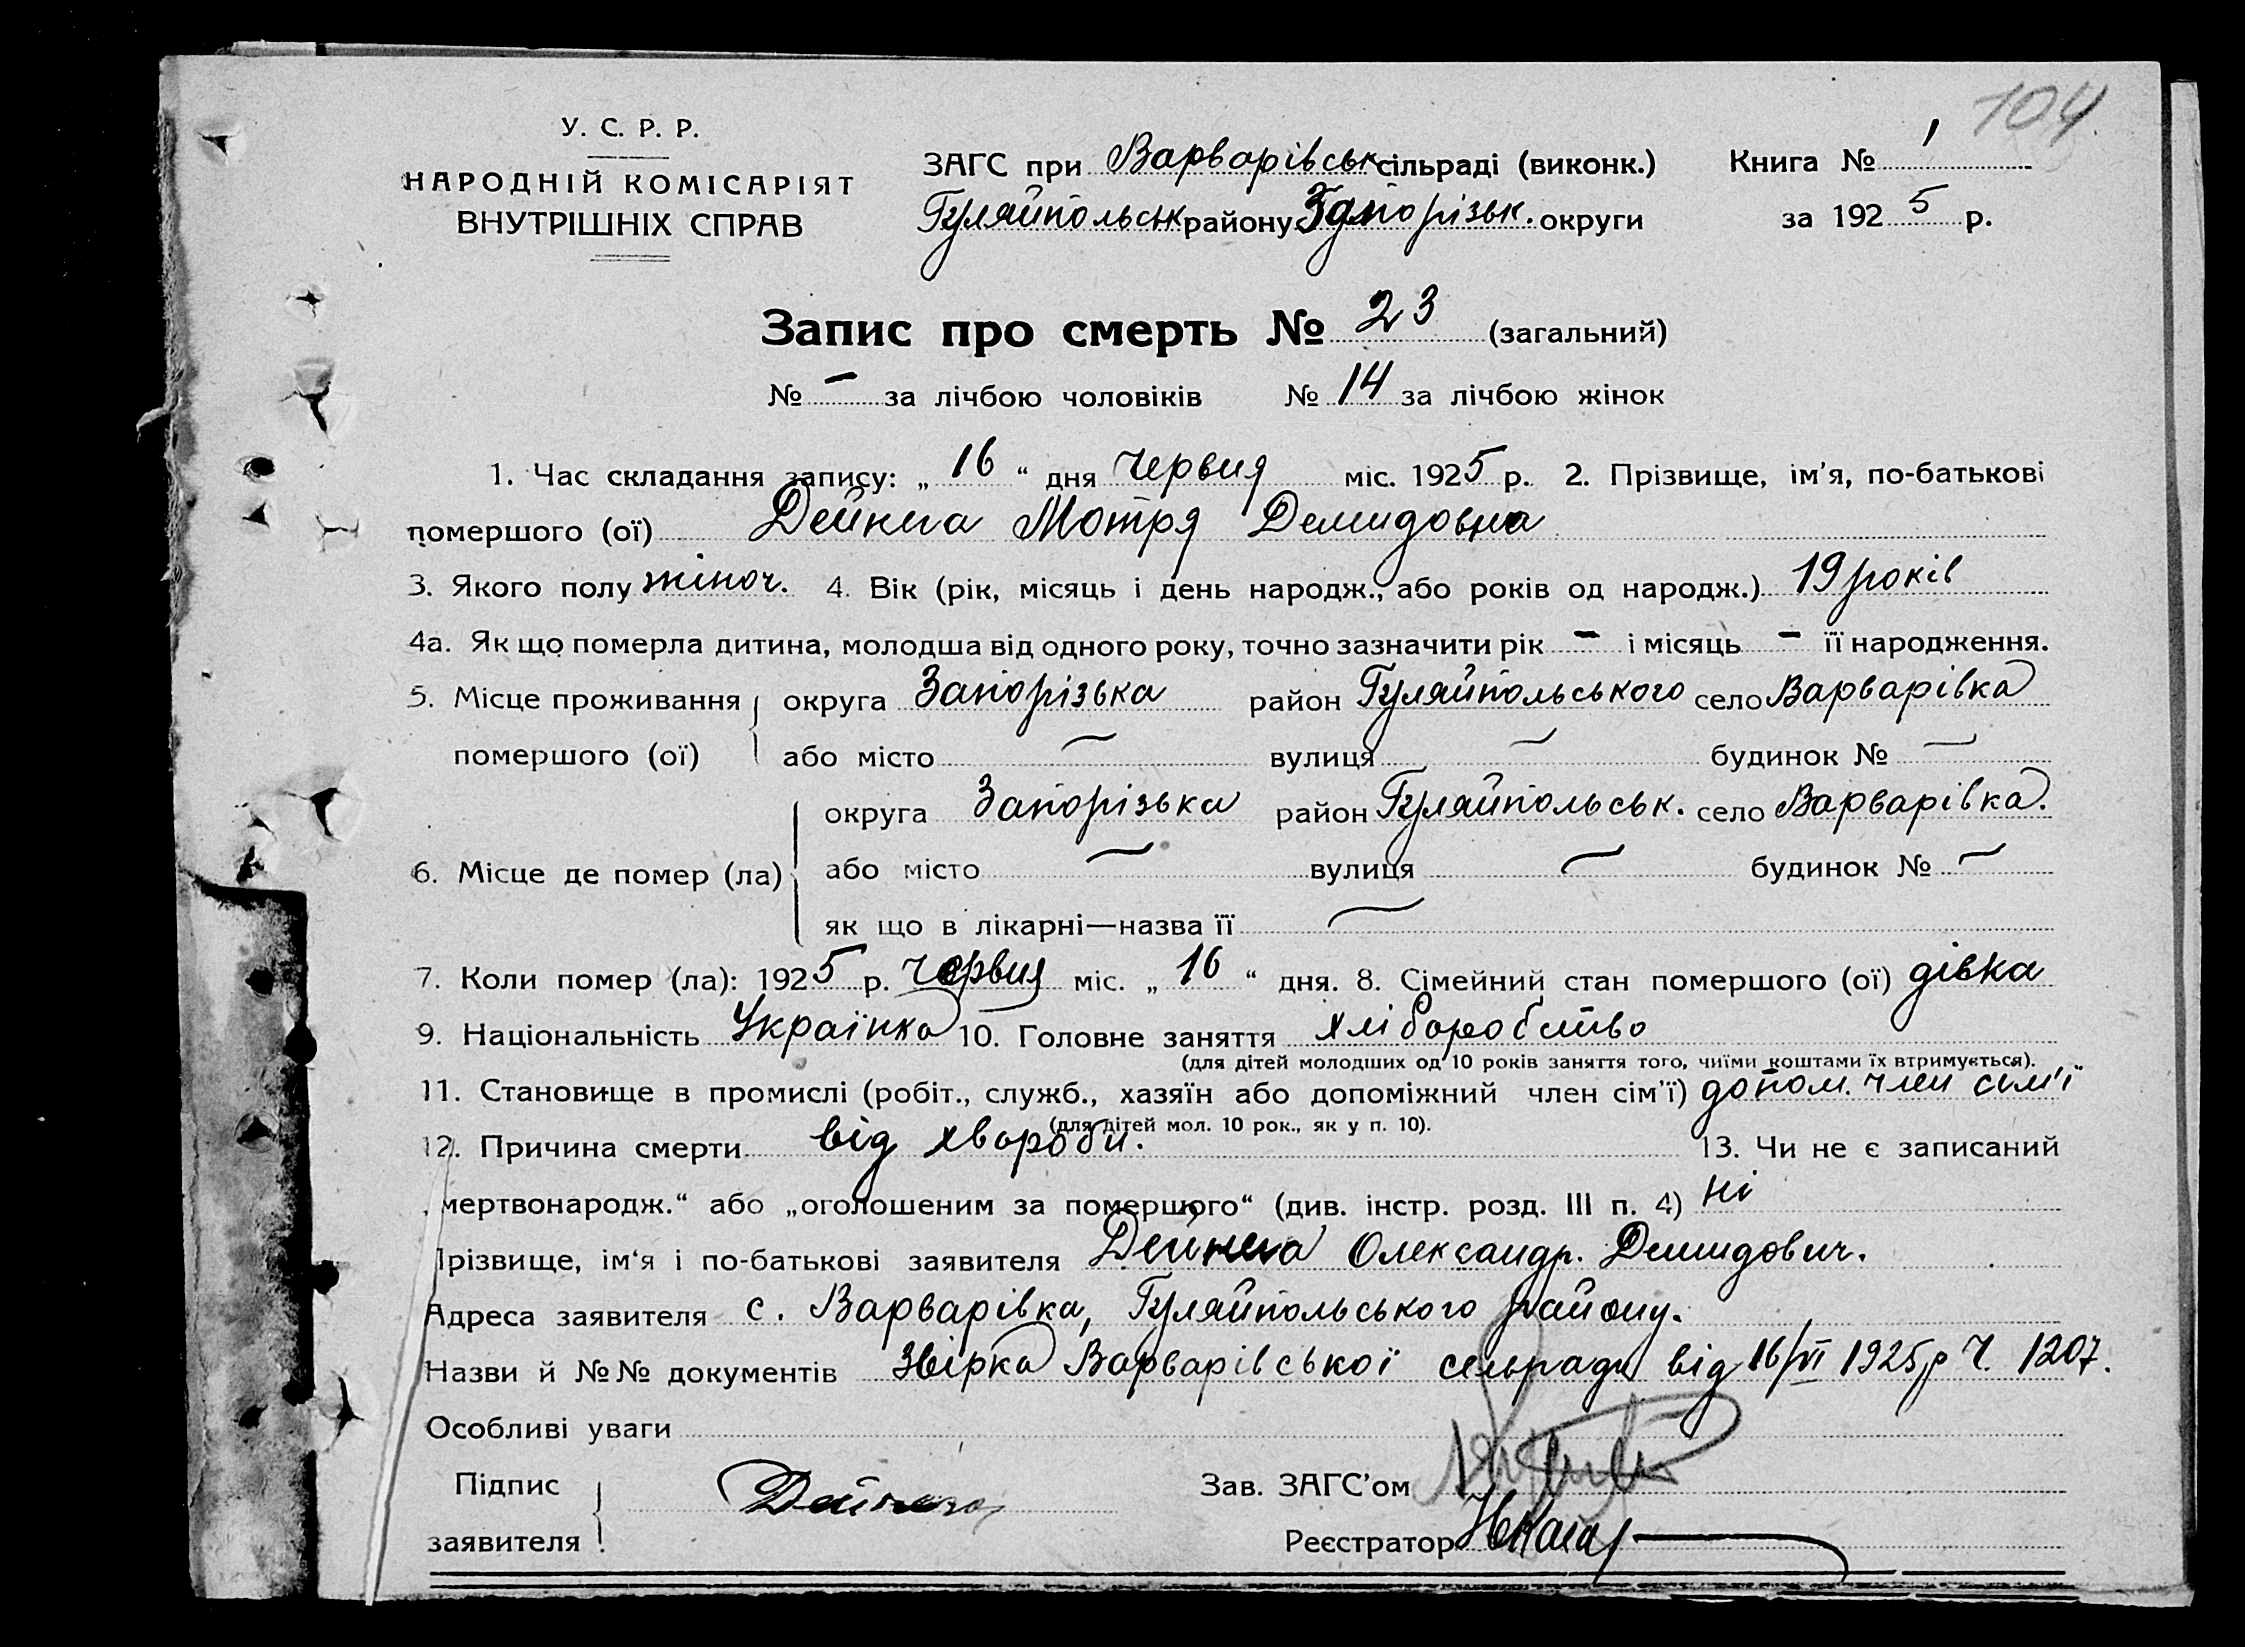 104
У. С. Р. Р.
НАРОДНІЙ КОМІСАРІЯТ
ВНУТРІШНІХ СПРАВ
ЗАГС при Варварівськ сільраді (виконк.) Книга № 1
Гуляйпольськ району Запорізьк. округи за 1925 р.
Запис про смерть № 23 (загальний)
№ – за лічбою чоловіків № 14 за лічбою жінок
1. Час складання запису: „ 16 “ дня червня міс. 1925 р. 2. Прізвище, ім'я, по-батькові
помершого (ої) Дейнега Мотря Демидовна
3. Якого полу жіноч. 4. Вік (рік, місяць і день народж., або років од народж.) 19 років
4а. Як що померла дитина, молодша від одного року, точно зазначити рік – і місяць – її народження.
5. Місце проживання округа Запорізька район Гуляйпольського село Варварівка
помершого (ої) або місто – вулиця – будинок № –
округа Запорізька район Гуляйпольськ. село Варварівка.
6. Місце де помер (ла) або місто – вулиця – будинок № –
як що в лікарні—назва її –
7. Коли помер (ла): 1925 р. червня міс. „ 16 “ дня. 8. Сімейний стан помершого (ої) дівка
9. Національність Українка 10. Головне заняття хліборобство
(для дітей молодших од 10 років заняття того, чиїми коштами їх втримується).
11. Становище в промислі (робіт., служб., хазяїн або допоміжний член сім'ї) допом. член сім'ї
(для дітей мол. 10 рок., як у п. 10).
12. Причина смерти від хвороби. 13. Чи не є записаний
мертвонародж.“ або „оголошеним за помершого“ (див. інстр. розд. III п. 4) ні
Прізвище, ім'я і по-батькові заявителя Дейнега Олександр. Демидович.
Адреса заявителя с. Варварівка, Гуляйпольського району.
Назви й №№ документів Звірка Варварівської сельради від 16/VI 1925 р Ч. 1207.
Особливі уваги
Підпис Дейнега Зав. ЗАГС'ом
заявителя Реєстратор